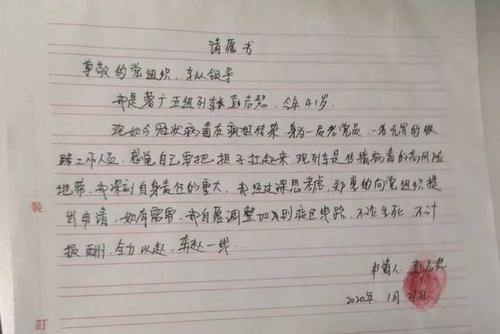 请愿书
尊敬的党组织、车队领导
我是 五组列车长 志 ,今年41岁
现如今冠状病毒在疯狂传染,身为一名老党员,一名元宵的铁
路工作人员,感觉自己要把担子扛起来,现列车是传播病毒的高风险
地带,我深刻自身责任的重大,我经过深思考虑,郑重的向党组织提
出申请,如有需要,我自愿调整加入到疫区线路,不论生死,不计
报酬,全力以赴,奔赴一线。
申请人 志
2020年1月 日
裝
訂